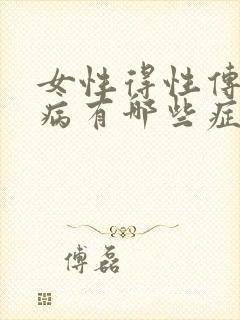 女性得性传
病有哪些症
傅磊